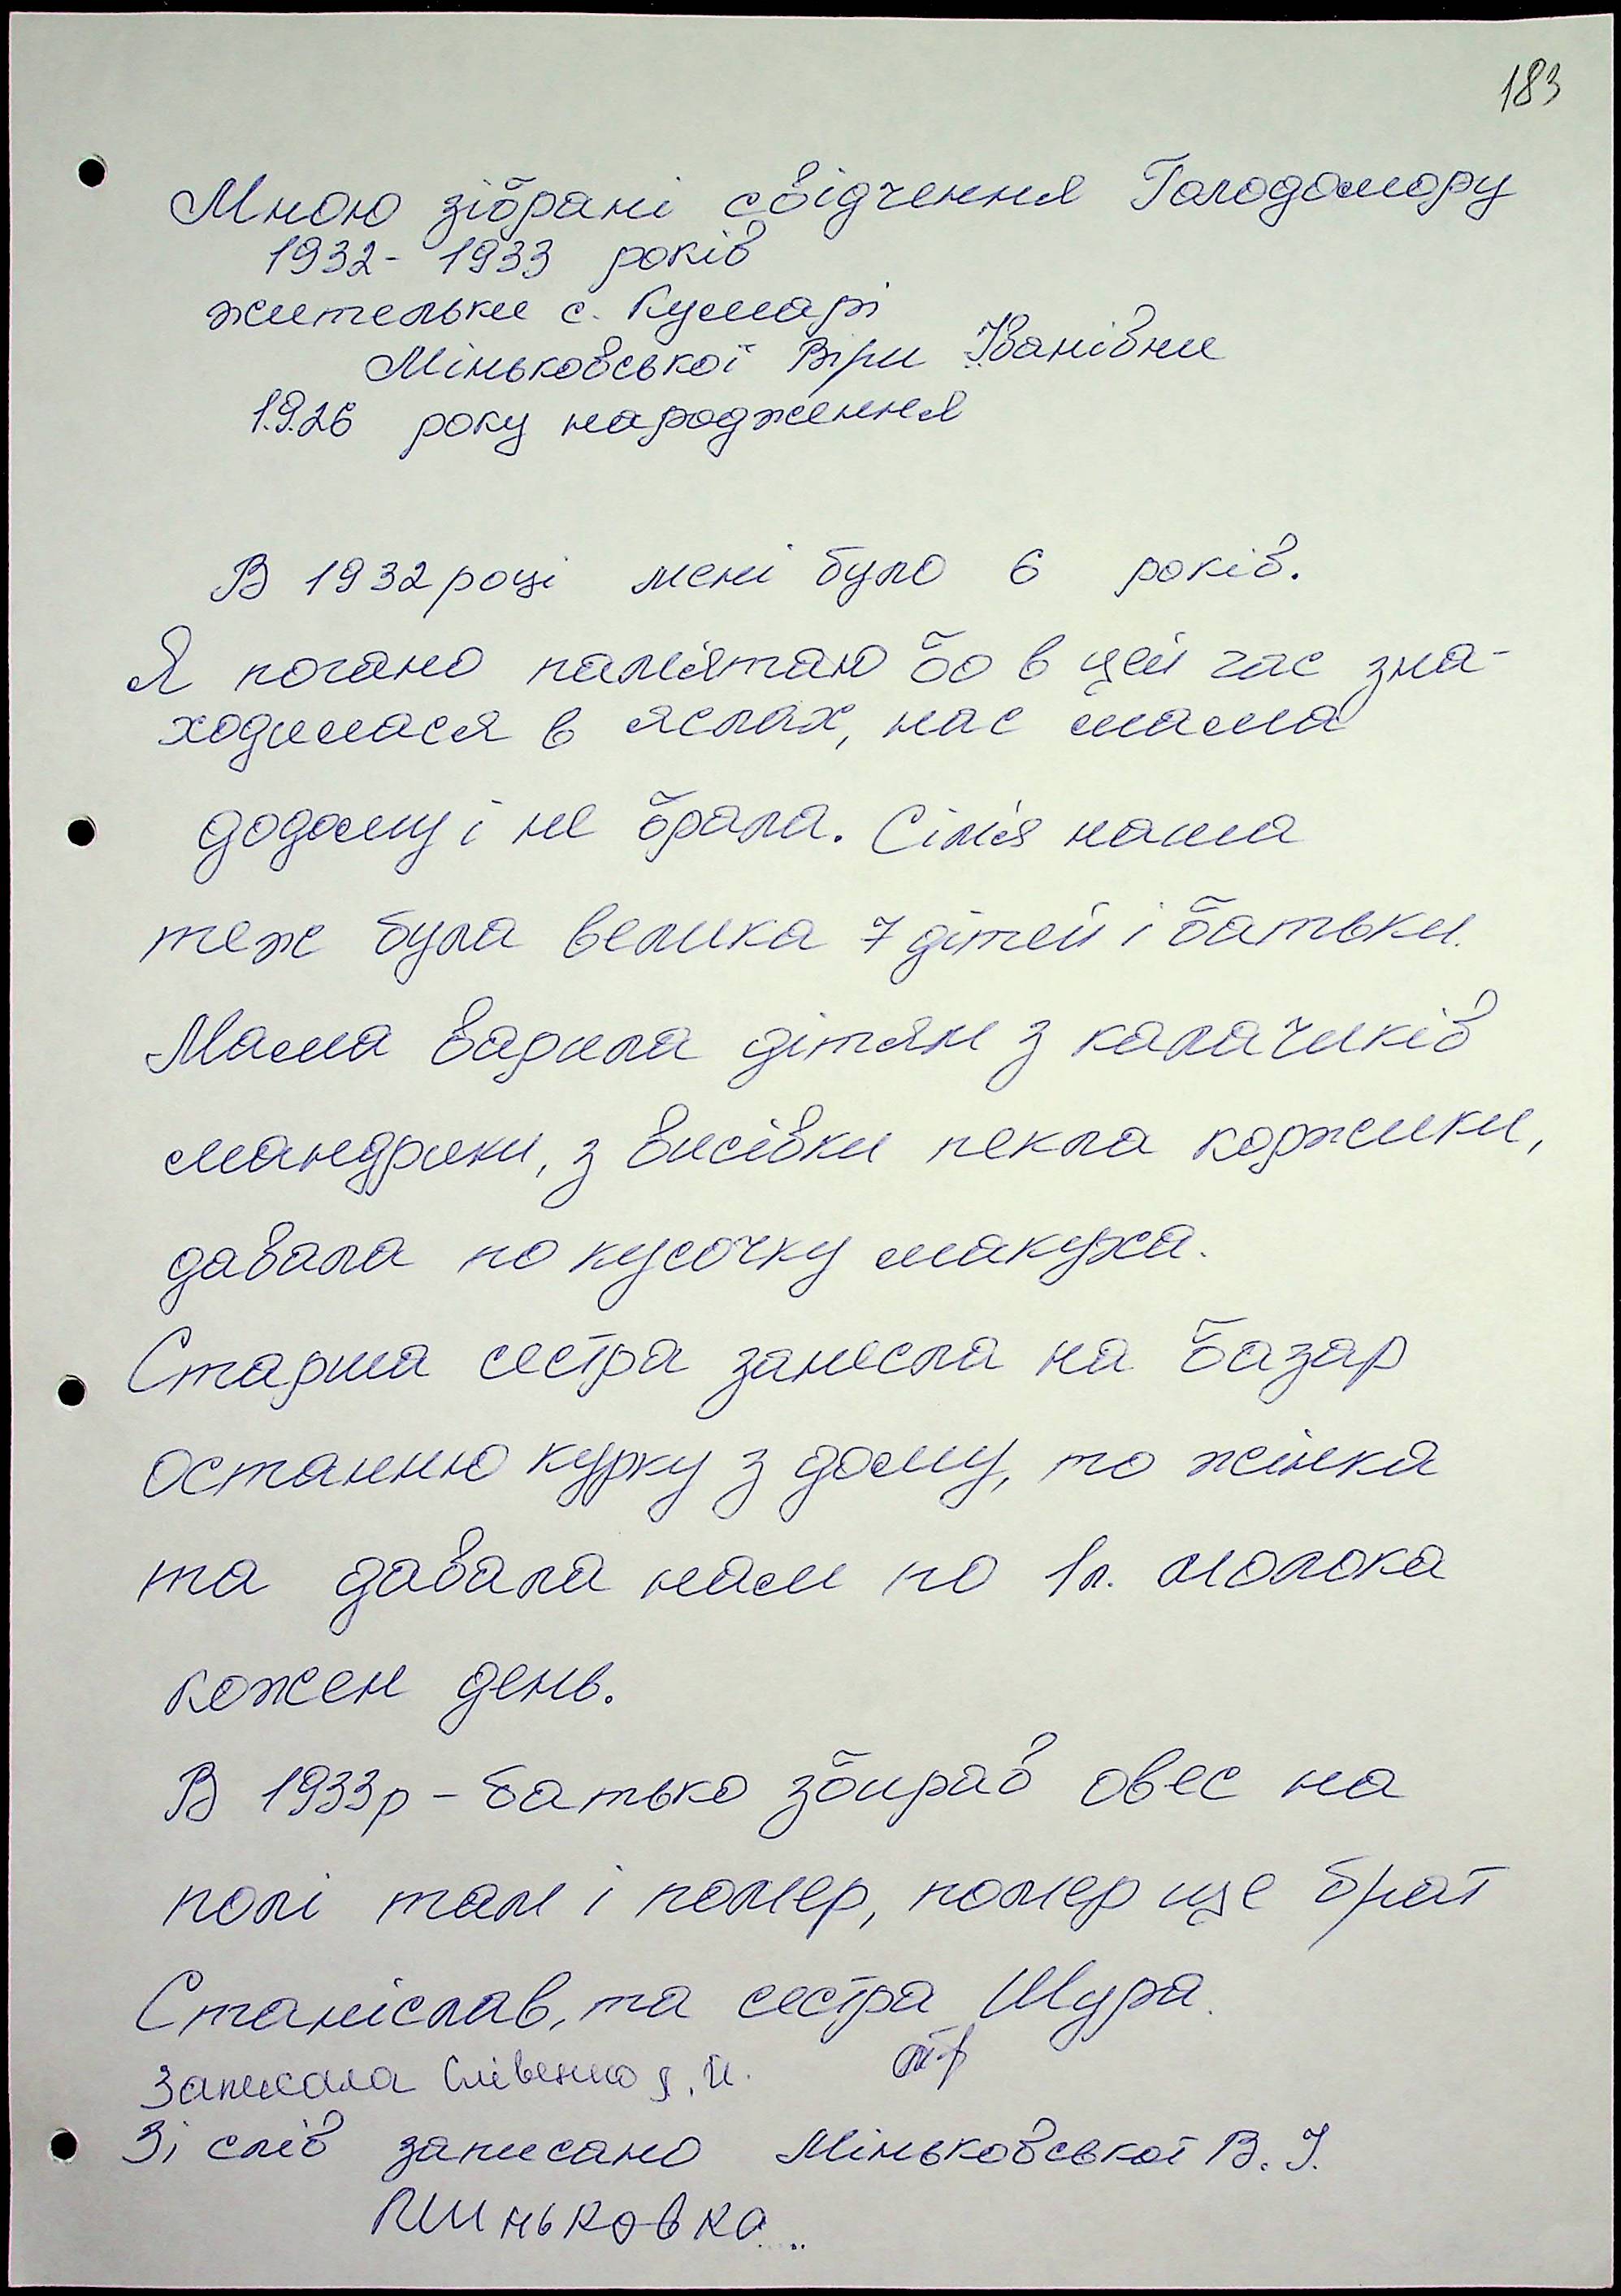 183
Мною зібрані свідчення Голодомору
1932- 1933 років
жительки с. Кумарі
Міньковської Віри Іванівни
1926 року народження
В 1932 році мені було 6 років.
Я погано пам'ятаю бо в цей час зна-
ходилася в яслах, нас мама
додому і не брала. Сім'я наша
теж була велика 7 дітей і батьки.
Мама варила дітям з калачиків
мандрики, з висівки пекла коржики,
давала по кусочку макуха.
Старша сестра занесла на базар
останню курку з дому, то жінка
та давала нам по 1л. молока
кожен день.
В 1933р - батько збирав овес на
полі там і помер, помер ще брат
Станіслав, та сестра Шура.
Записала
Зі слів записано Міньковської В. І.